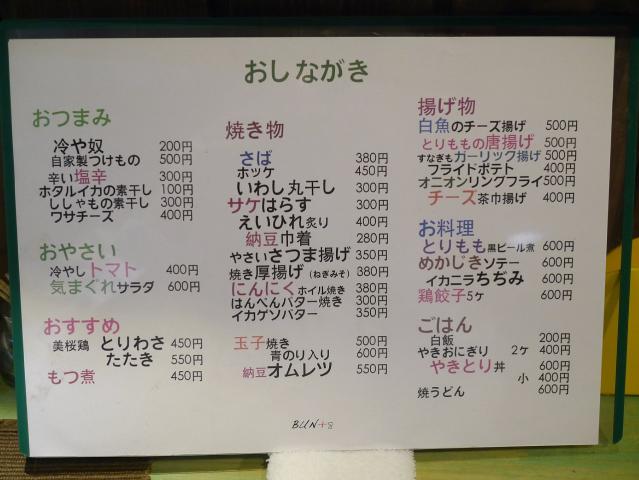 おしながき
おつまみ
冷や奴 200円
自家製つけもの 500円
辛い塩辛 300円
ホタルイカの素干し 100円
ししゃもの素干し 300円
ワサチーズ 400円
おやさい
冷やしトマト 400円
気まぐれサラダ 600円
おすすめ
美桜鶏 とりわさ 450円
たたき 550円
もつ煮 450円
焼き物
さば 380円
ホッケ 450円
いわし丸干し 300円
サケはらす 300円
えいひれ炙り 400円
納豆巾着 280円
やさいさつま揚げ 350円
焼き厚揚げ (ねぎみそ) 380円
にんにくホイル焼き 380円
はんぺんバター焼き 300円
イカゲソバター 350円
玉子焼き 500円
青のり入り 600円
納豆オムレツ 550円
揚げ物
白魚のチーズ揚げ 500円
とりももの唐揚げ 500円
すなぎもガーリック揚げ 500円
フライドポテト 400円
オニオンリングフライ 500円
チーズ茶巾揚げ 400円
お料理
とりもも黒ビール煮 600円
めかじきソテー 600円
イカニラちぢみ 600円
鶏餃子5ケ 600円
ごはん
白飯 200円
やきおにぎり 2ケ 400円
やきとり丼 600円
小 400円
焼うどん 600円
BUN+8